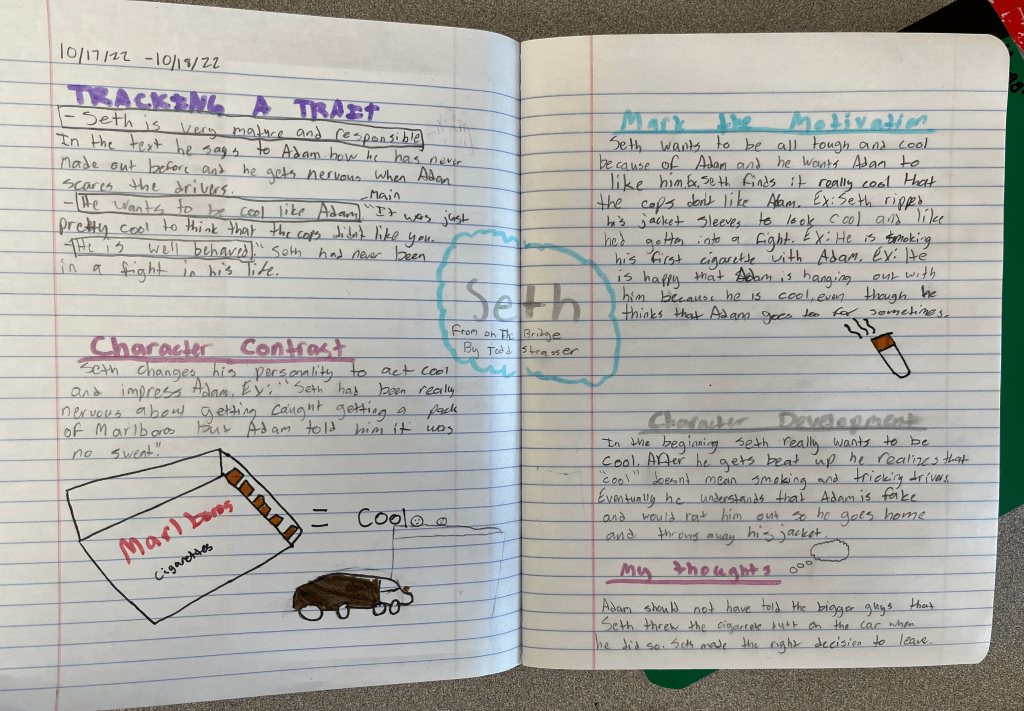 10/17/22 - 10/18/22
TRACKING A TRAIT
- Seth is very mature and responsible
In the text he says to Adam how he has never
made out before and he gets nervous when Adam
scares the drivers.
Main
- He wants to be cool like Adam "It was just
pretty cool to think that the cops didn't like you.
He is well behaved: "Seth had never been
in a fight in his life.
Character Contrast
Seth changes his personality to act cool
and impress Adam. EX: "Seth had been really
nervous about getting caught getting a pack
of Marlboros but Adam told him it was
no sweat."
Marlboros
cigarettes
= Cool
Seth
From on the Bridge
By Todd Strasser
Mark the Motivation
Seth wants to be all tough and cool
because of Adam and he wants Adam to
like him. Ex. Seth finds it really cool that
the cops don't like Adam. Ex: Seth ripped
his jacket sleeves to look cool and like
he'd gotten into a fight. EX: He is smoking
his first cigarette with Adam. EX: He
is happy that Adam is hanging out with
him because he is cool, even though he
thinks that Adam goes too far sometimes.
Character Development
In the beginning Seth really wants to be
cool. After he gets beat up he realizes that
"cool" doesnt mean smoking and tricking drivers.
Eventually he understands that Adam is fake
and would rat him out so he goes home
and throws away his jacket.
My thoughts
Adam should not have told the bigger guys that
Seth threw the cigarrete butt on the car when
he did so. Seth made the right decision to leave.